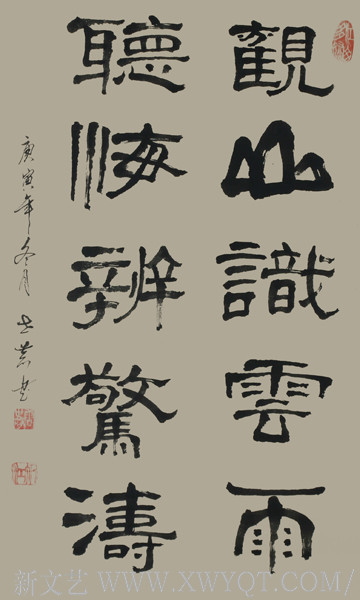 觀山識雲雨
聽海辨驚濤
庚寅年冬月
新文艺 WWW.XWYQT.COM/